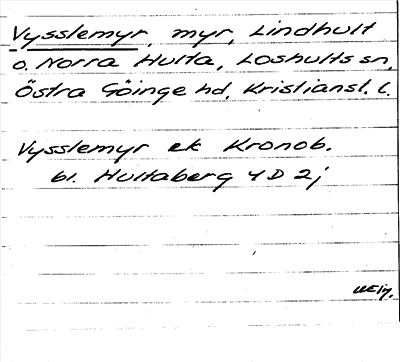 Vysslemyr, myr, Lindhult
o. Norra Hulta, Loshults sn,
Östra Göinge hd, Kristianst. l.
Vysslemyr ek Kronob.
bl. Hultaberg 4D 2j